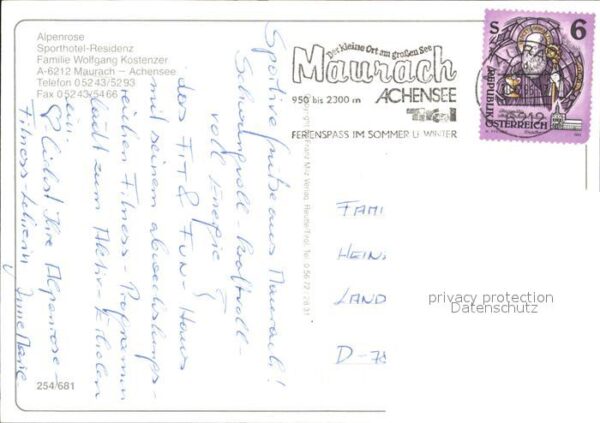 Alpenrose
Sporthotel-Residenz
Familie Wolfgang Kostenzer
A-6212 Maurach – Achensee
Telefon 05243/5293
Fax 05243/5466
Der kleine Ort am großen See
Maurach
950 bis 2300 m ACHENSEE
Tirol
FERIENSPASS IM SOMMER U. WINTER
S 6
REPUBLIK
ÖSTERREICH
6212
Sportive Grüße aus Maurach!
Schwungvoll - kraftvoll -
voll Energie
das FIT & FUN - Haus
mit seinem abwechslungs-
reichen Fitness - Programm
lädt zum Aktiv - Erholen
ein.
Ihre Alpenrose -
Fitness - Lehrerin Annemarie
FAMI
HEIN
LAND
D-78
privacy protection
Datenschutz
254/681